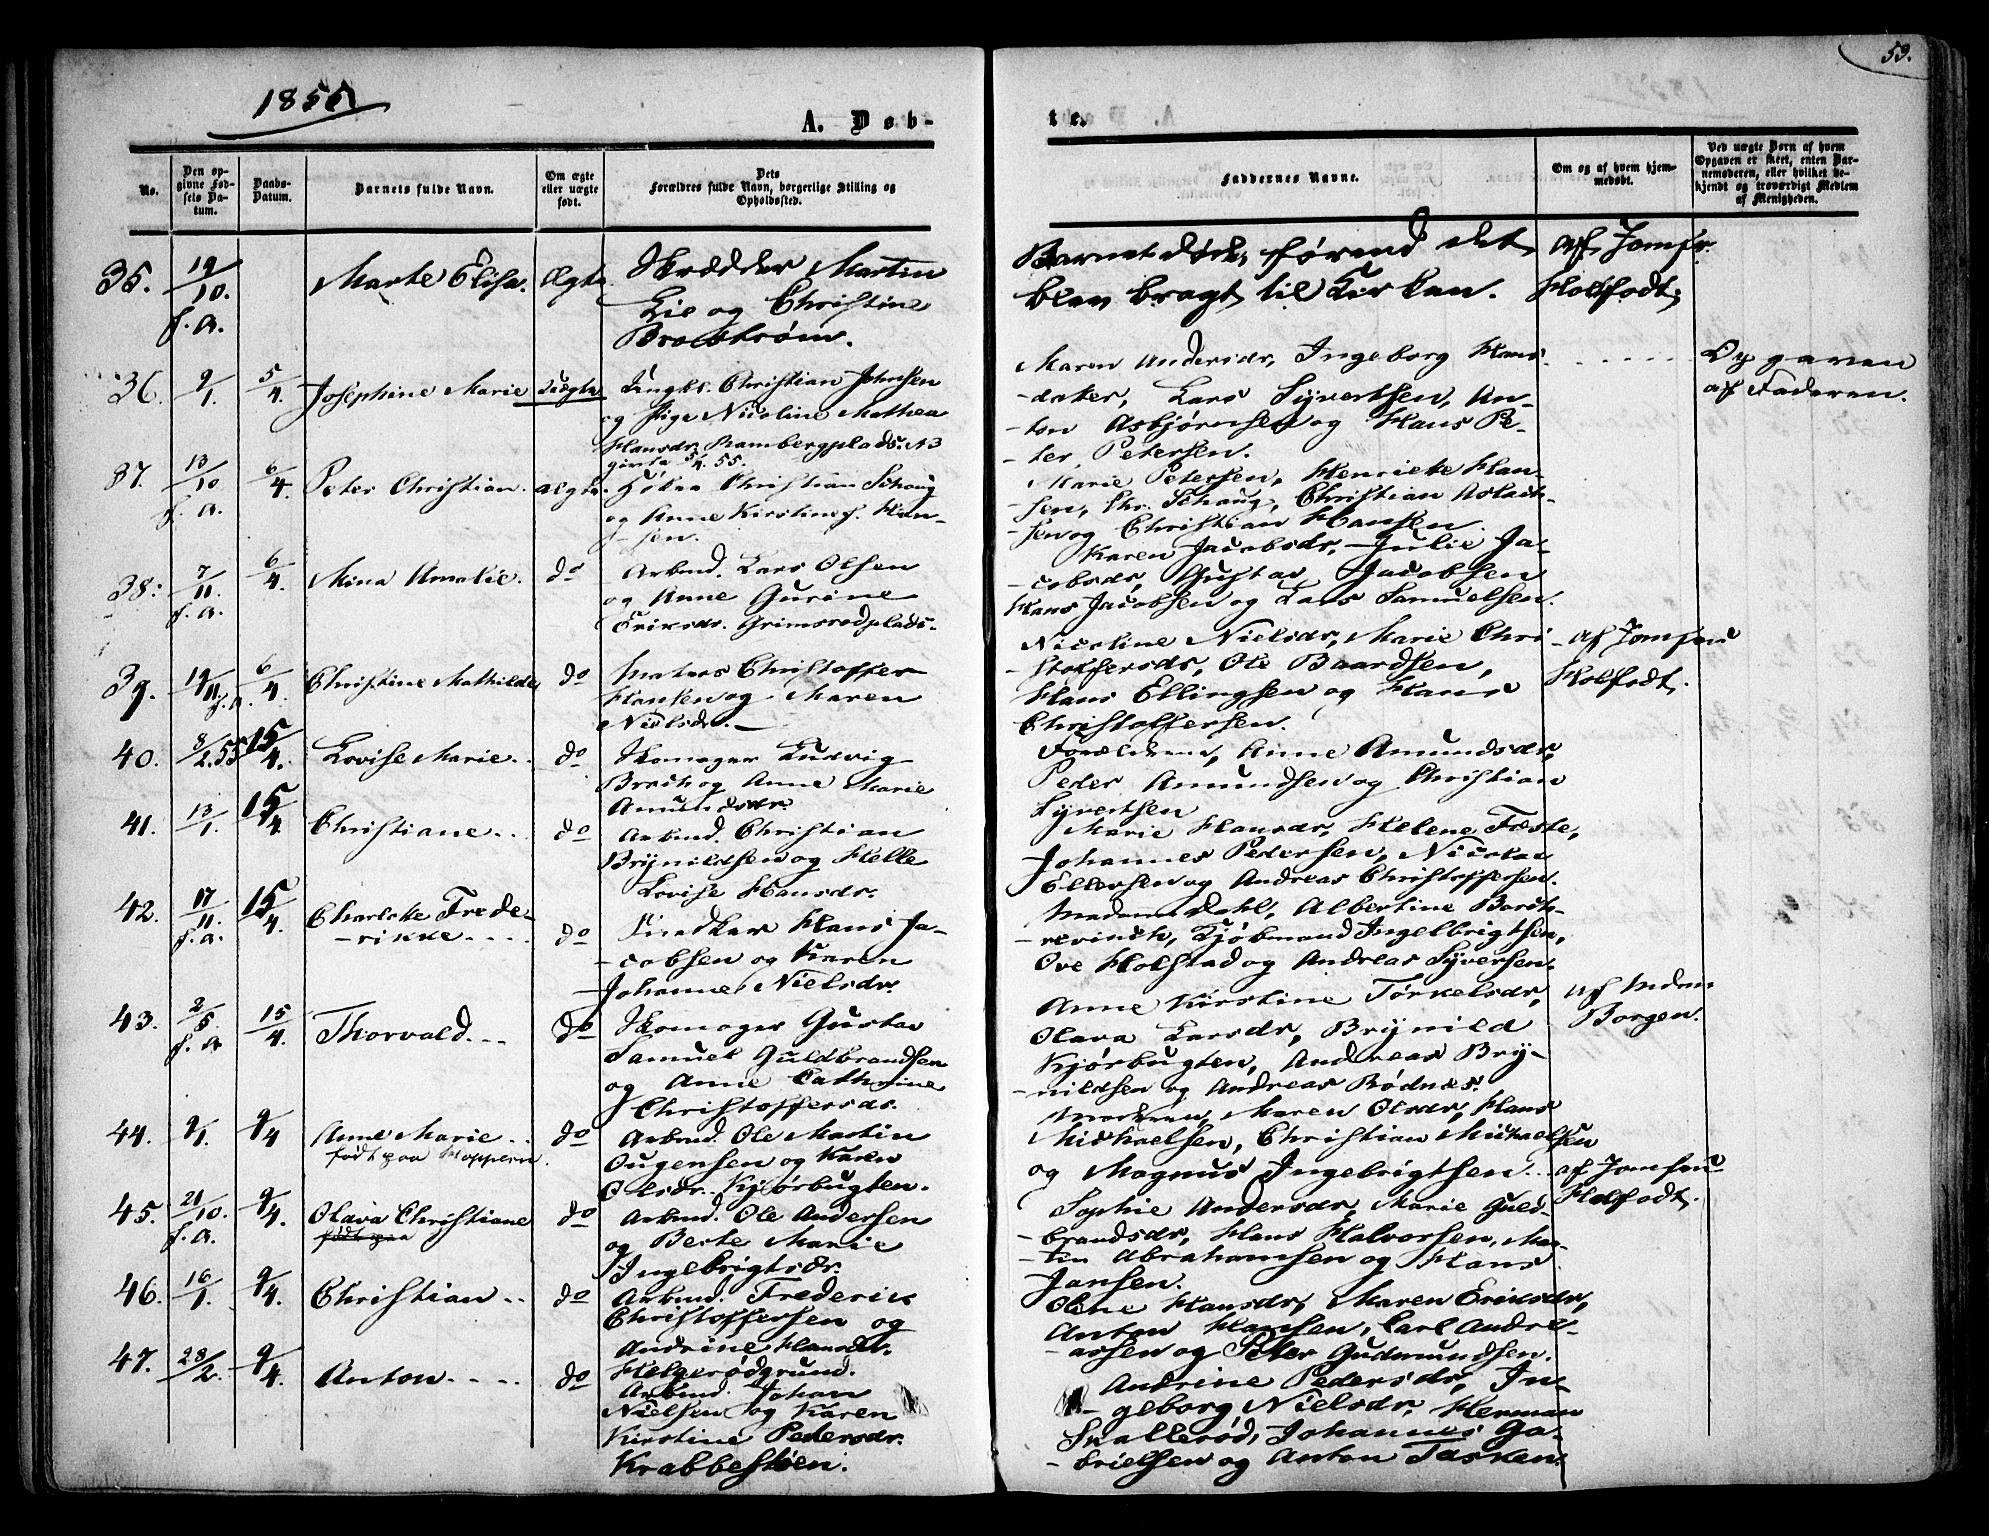 1855
A. Døb-
te.
53.
No.
Den op-
givne Fød-
sels Da-
tum.
Daabs-
Datum.
Barnets fulde Navn.
Om ægte
eller uægte
født.
Dets
Forældres fulde Navn, borgerlige Stilling og
Opholdssted.
Faddernes Navne.
Om og af hvem hjem-
medøbt.
Ved uægte Børn af hvem
Opgaven er skeet, enten Bar-
nemoderen, eller hvilket be-
kjendt og troværdigt Medlem
af Menigheden.
35. 19/10 f. a. Marte Elisa. Ægte
Skrædder Martin
Lie og Christine
Brodstrøm.
Barnet døde, førend det
blev bragt til Kirken.
af Jomfr.
Holfodt.
36. 9/1. 5/4. Josephine Marie uægte
Ungk. Christian Johnsen
og Pige Nicoline Mathea
Hansdr. Rambergplads. N3
givta 5/4. 55.
Maren Andersdr, Ingeborg Hans-
-datter, Lars Syvertsen, An-
-ton Asbjørnsen og Hans Pe-
-ter Petersen.
Opgaven
af Faderen.
37. 13/10 f. a. 6/4. Peter Christian. ægte.
Høker Christian Schaug
og Anne Kirstine f. Han-
-sen.
Marie Petersen, Henrikke Han-
sen, Chr. Schaug, Christian Aslach-
-sen og Christian Hansen.
38. 7/11. f. a. 6/4. Mina Amalie. do
Arbmd. Lars Olsen
og Anne Gurine
Eriksdr. Grimsrødplads.
Karen Jacobsdr, Julie Ja-
-cobsdr, Gustav Jacobsen
Hans Jacobsen og Lars Samuelsen.
39. 19/11 f. a. 6/4. Christine Mathilde do
Matros Christoffer
Hansen og Maren
Nielsdr.
Nicoline Nielsdr, Marie Chri-
-stoffersdr, Ole Baardsen,
Hans Ellingsen og Hans
Christoffersen.
af Jomfru
Holfodt.
40. 8/2. 55 15/4. Lovise Marie. do
Skomager Ludvig
Broch og Anne Marie
Amundsdr.
Forældrene, Anne Amundsdr,
Peder Amundsen og Christian
Syvertsen
41. 13/1. 15/4 Christiane do
Arbmd. Christian
Brynildsen og Helle
Lovise Hansdr.
Marie Hansdr, Helene Feste,
Johannes Pedersen, Nicolai
Ellevsen og Andreas Christoffersen.
42. 17/11. f. a. 15/4. Charlotte Frede-
-rikke do
Snedker Hans Ja-
-cobsen og Karen
Johanne Nielsdr.
Madame Dahl, Albertine Borch-
-revinck, Kjøbmand Ingelbrigtsen,
Ove Holstad og Andreas Syversen.
43. 2/5 f. a 15/4. Thorvald do
Skomager Gustav
Samuel Guldbrandsen
og Anne Cathrine
Christoffersdr.
Anne Kirstine Torkelsdr,
Olava Larsdr, Brynild
Kjørbugten, Andreas Bry-
-nildsen og Andreas Rødnes.
af Mdm
Borgen.
44. 9/1. 9/4 Anne Marie
født paa Kloppern do
Arbmd. Ole Martin
Ougensen og Karen
Olsdr. Kjørbugten.
Moderen, Maren Olsdr, Hans
Michaelsen, Christian Michaelsen
og Magnus Ingebrigtsen.
45. 21/10. f. a. 9/4. Olava Christiane
født paa do
Arbmd. Ole Andersen
og Berte Marie
Ingebrigtsdr.
Sophie Andersdr, Marie Guld-
-brandsdr, Hans Halvorsen, Mar-
-tin Abrahamsen og Hans
Jansen.
af Jomfru
Holfodt.
46. 16/1. 9/4. Christian do
Arbmd. Frederik
Christoffersen og
Andrine Hansdr.
Helgerødgrund.
Olene Hansdr, Maren Eriksdr,
Anton Hansen, Carl Andre-
-assen og Peter Gudmundsen.
47. 28/2. 9/4. Anton do
Arbmd. Johan
Nielsen og Karen
Kirstine Pedersdr.
Krabbestøen.
Andrine Pedersdr, In-
-geborg Nielsdr, Herman
Skallerød, Johannes Ga-
-brielsen og Anton Tasken.